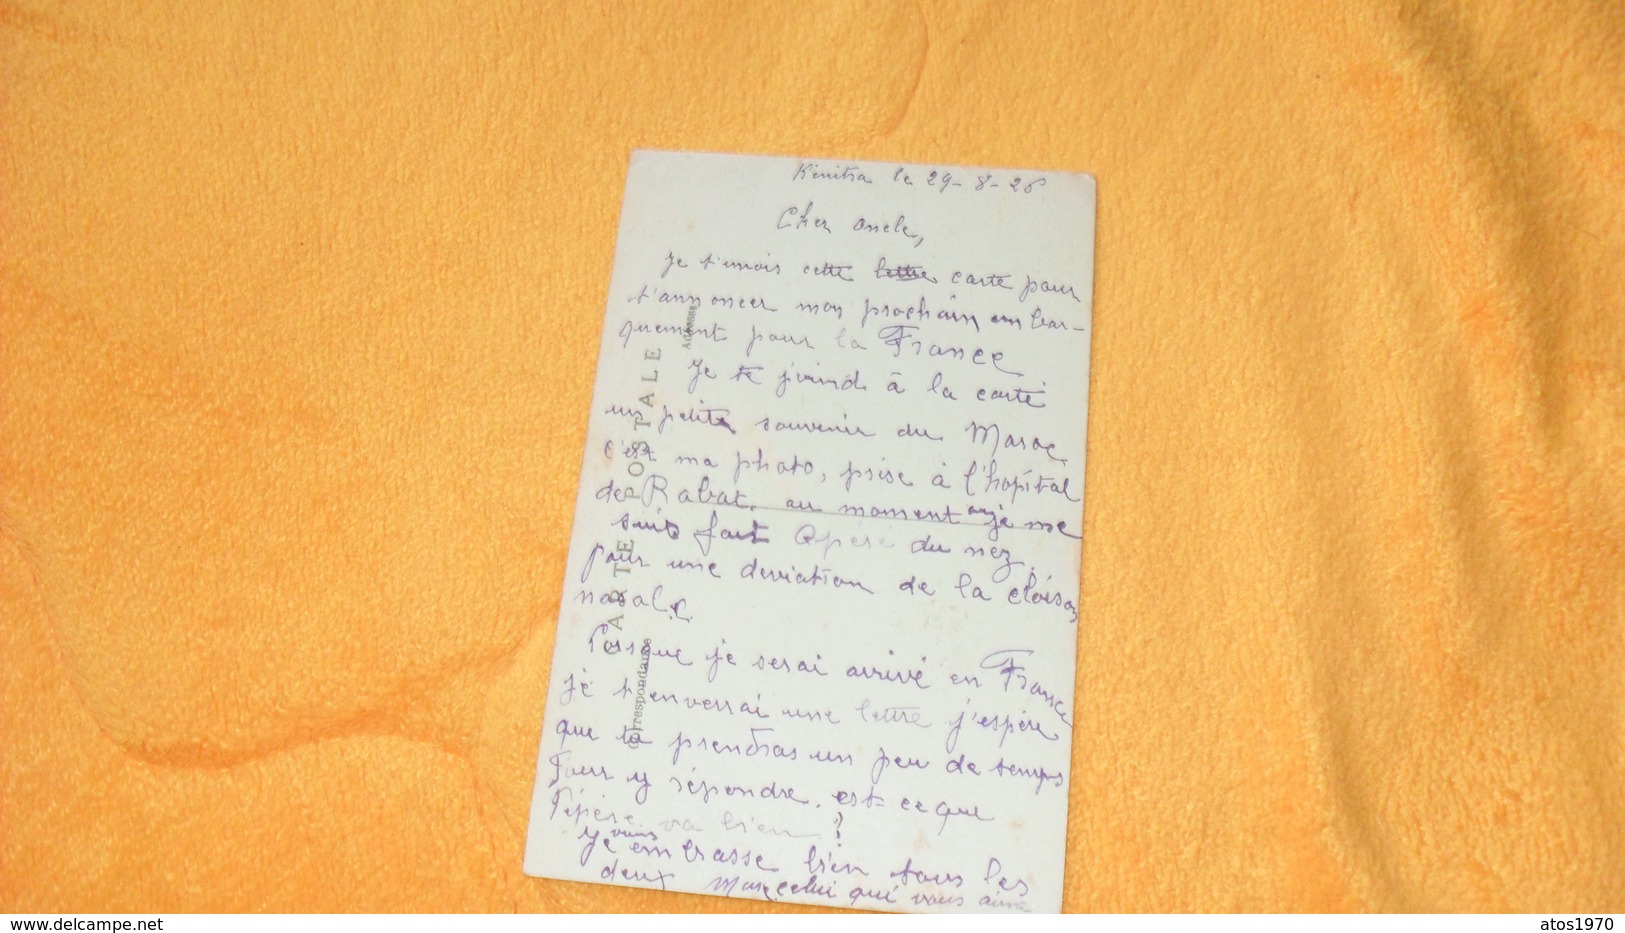 Kénitra le 29-8-26
Cher oncle,
Je t'envois cette lettre carte pour
t'annoncer mon prochain embar-
quement pour la France
Je te joind à la carte
un petit souvenir du Maroc
c'est ma photo, prise à l'hopital
de Rabat, au moment ou je me
suis fait opéré du nez
pour une deviation de la cloison
nasale.
Lorsque je serai arrivé en France
je t'enverrai une lettre j'espère
que tu prendras un peu de temps
pour y répondre. est-ce que
Pépère va bien ?
Je vous embrasse bien tous les
deux Marcel celui qui vous aime
CARTE POSTALE
Correspondance
Adresse
www.delcampe.net
atos1970